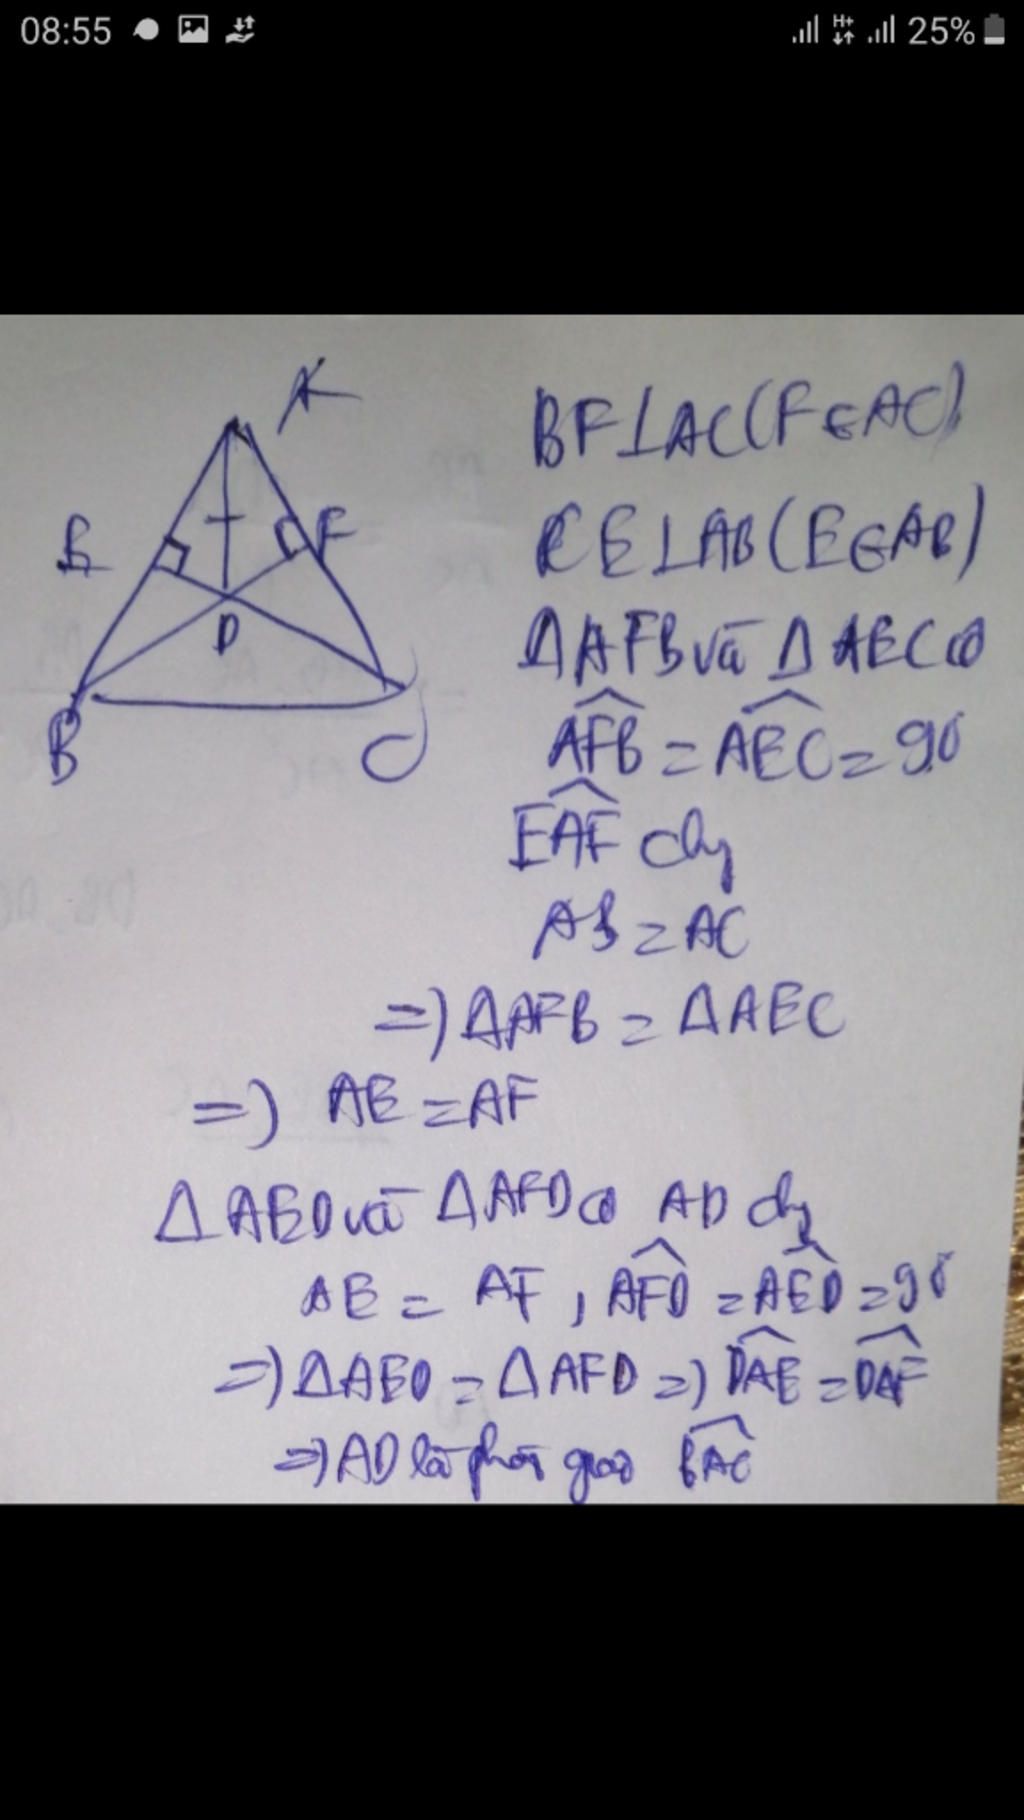 08:55 25%
A
E F
D
B C
BF⊥AC(F∈AC)
CE⊥AB(E∈AB)
ΔAFB và ΔAEC có
AFB = AEC = 90°
EAF chg
AB = AC
=) ΔAFB = ΔAEC
=) AE = AF
ΔAED và ΔAFD có AD chg
AE = AF, AFD = AED = 90°
=) ΔAED = ΔAFD =) DAE = DAF
=) AD là phân giác BAC